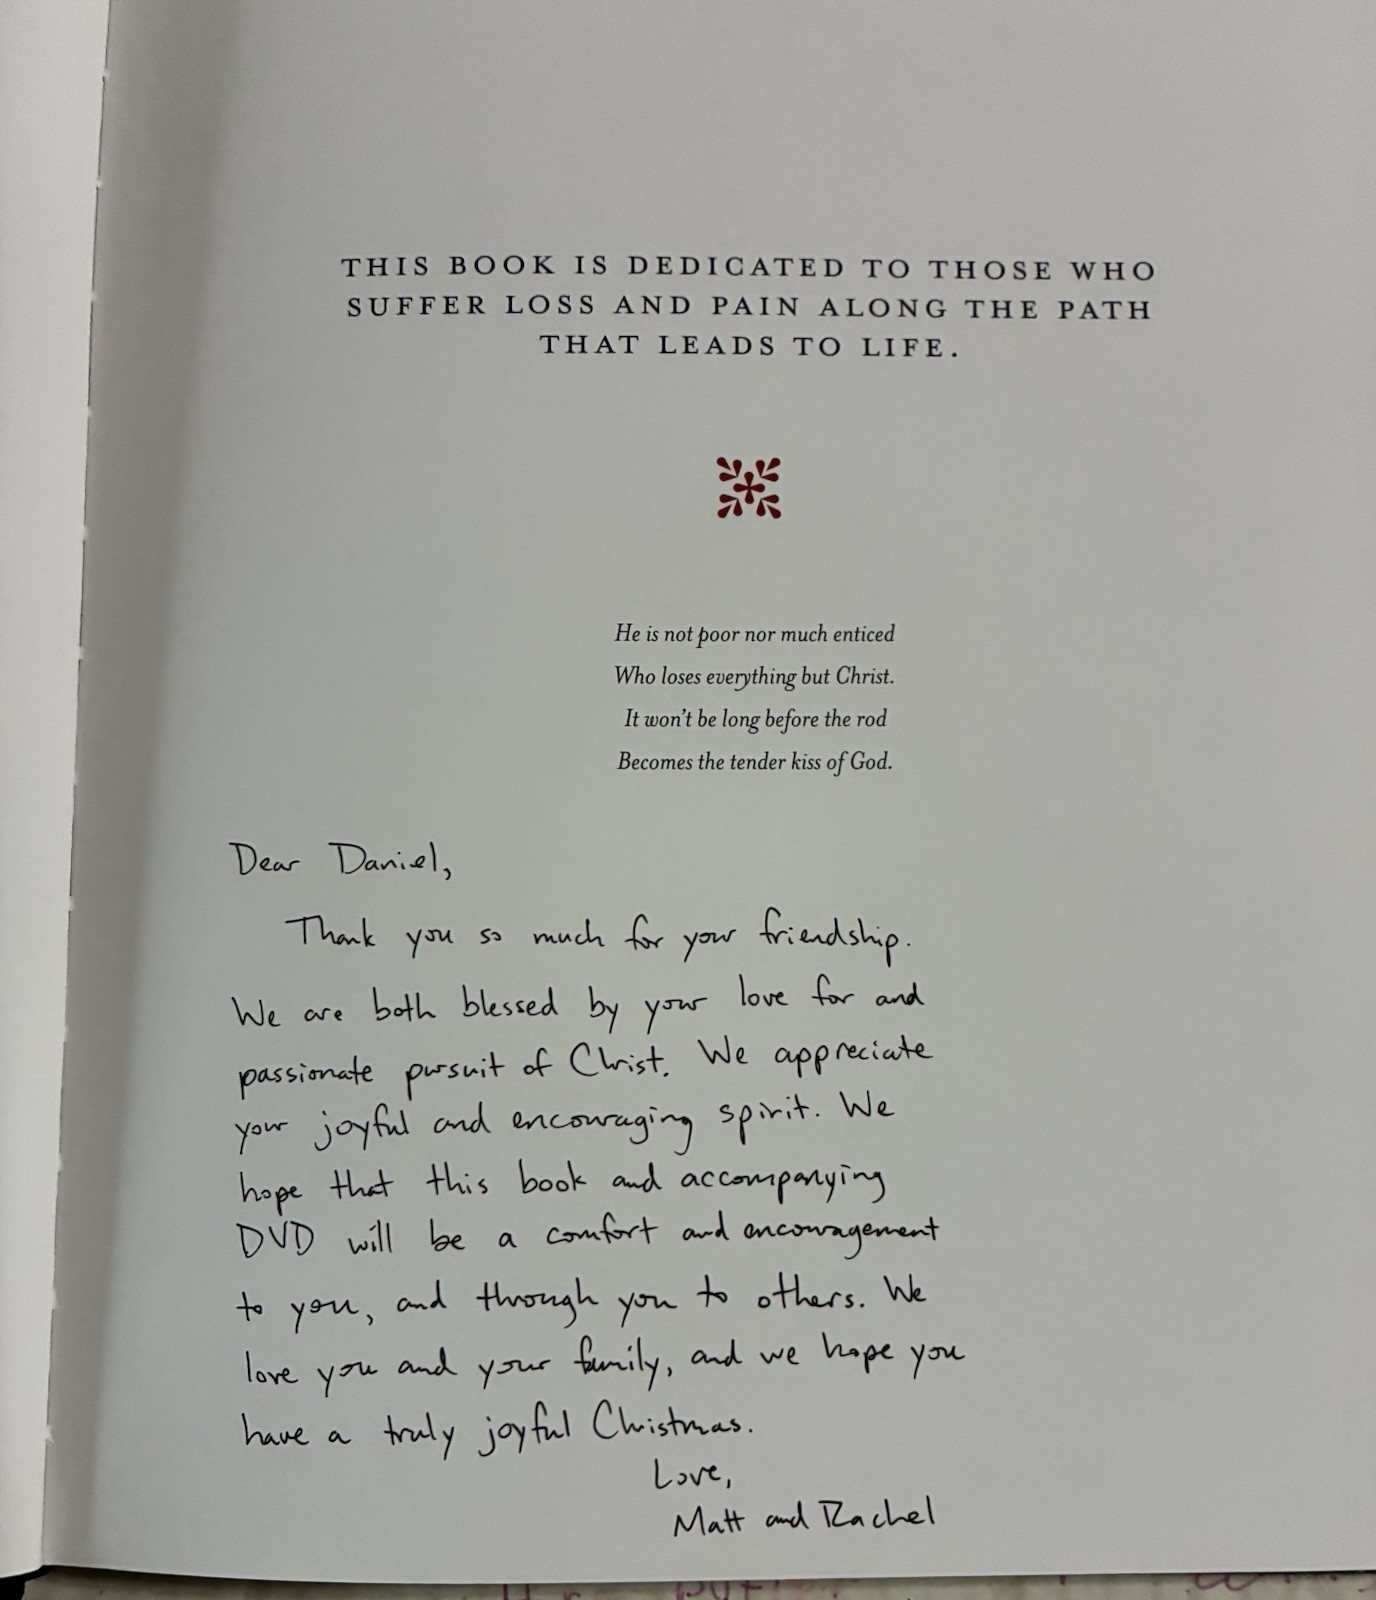 THIS BOOK IS DEDICATED TO THOSE WHO
SUFFER LOSS AND PAIN ALONG THE PATH
THAT LEADS TO LIFE.
He is not poor nor much enticed
Who loses everything but Christ.
It won't be long before the rod
Becomes the tender kiss of God.
Dear Daniel,
Thank you so much for your friendship.
We are both blessed by your love for and
passionate pursuit of Christ. We appreciate
your joyful and encouraging spirit. We
hope that this book and accompanying
DVD will be a comfort and encouragement
to you, and through you to others. We
love you and your family, and we hope you
have a truly joyful Christmas.
Love,
Matt and Rachel